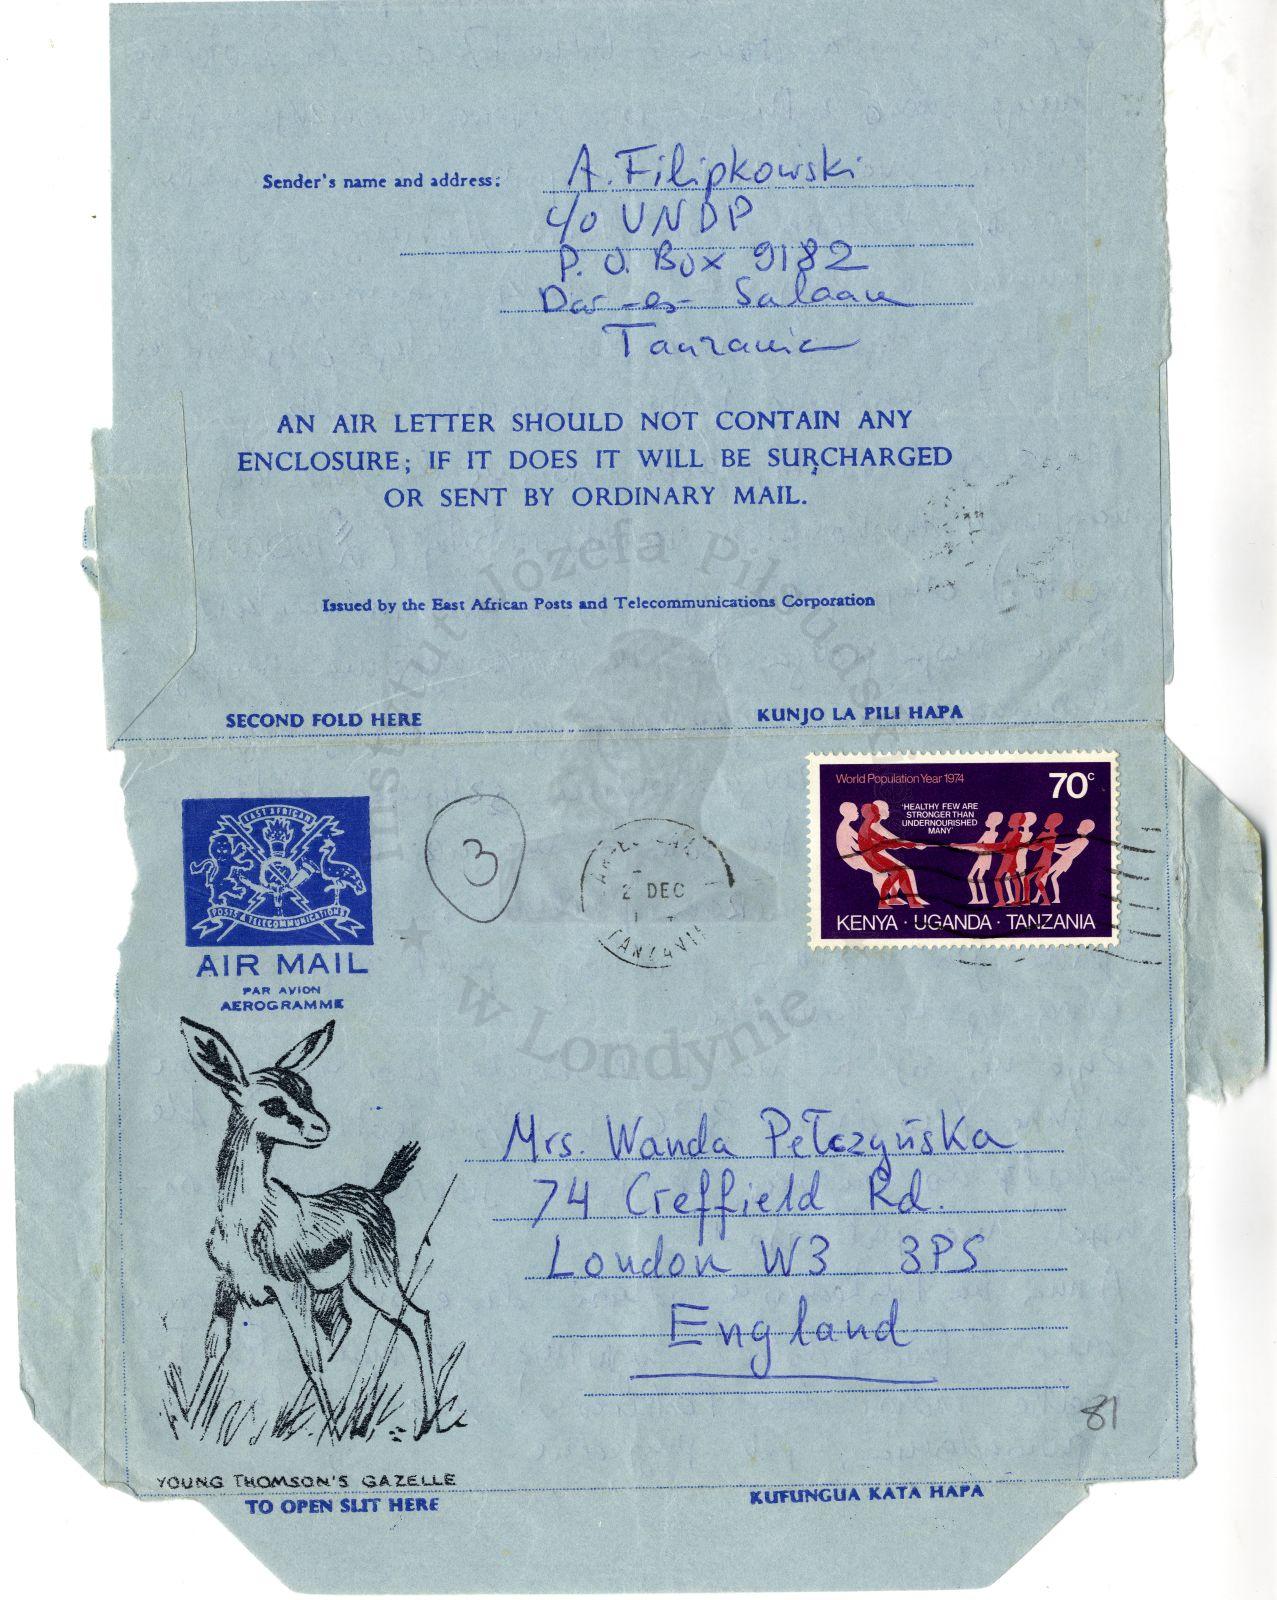 Sender's name and address: A. Filipkowski
c/o UNDP
P. O. Box 9182
Dar-es-Salaam
Tanzania
AN AIR LETTER SHOULD NOT CONTAIN ANY
ENCLOSURE; IF IT DOES IT WILL BE SURCHARGED
OR SENT BY ORDINARY MAIL.
Instytut Józefa Piłsudskiego
Issued by the East African Posts and Telecommunications Corporation
SECOND FOLD HERE KUNJO LA PILI HAPA
World Population Year 1974 70c
'HEALTHY FEW ARE
STRONGER THAN
UNDERNOURISHED
MANY'
KENYA · UGANDA · TANZANIA
EAST AFRICAN
POSTS & TELECOMMUNICATIONS
3
2 DEC
TANZANIA
AIR MAIL
PAR AVION
AEROGRAMME
w Londynie
Mrs. Wanda Pełczyńska
74 Creffield Rd.
London W3 3PS
England
81
YOUNG THOMSON'S GAZELLE
TO OPEN SLIT HERE KUFUNGUA KATA HAPA